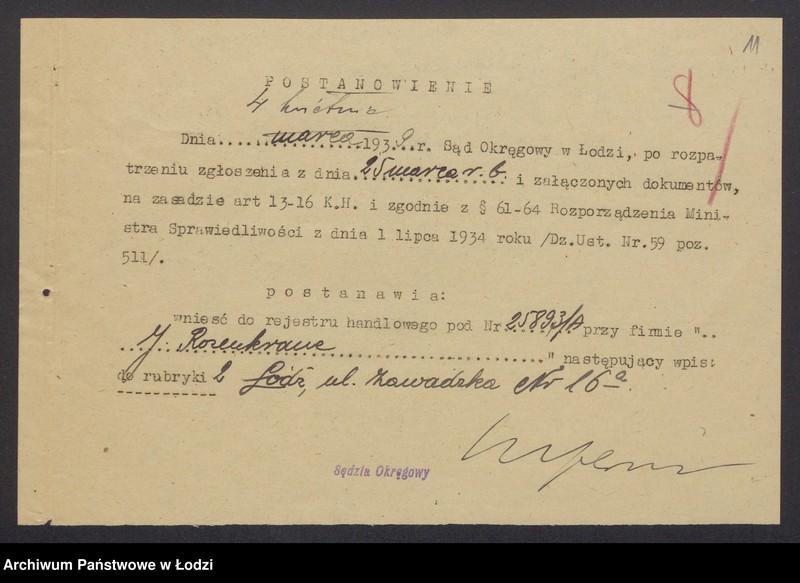 11
8
POSTANOWIENIE
4 kwietnia
Dnia.....marca.....1939.r. Sąd Okręgowy w Łodzi, po rozpa-
trzeniu zgłoszenia z dnia.25 marca r. b. i załączonych dokumentów,
na zasadzie art 13-16 K.H. i zgodnie z § 61-64 Rozporządzenia Mini-
stra Sprawiedliwości z dnia 1 lipca 1934 roku /Dz.Ust. Nr.59 poz.
511/.
postanawia:
wnieść do rejestru handlowego pod Nr.25893/A przy firmie "..
..J. Rozenkranc........................" następujący wpis:
do rubryki 2 Łódź, ul. Zawadzka Nr 16a.
Sędzia Okręgowy
Archiwum Państwowe w Łodzi